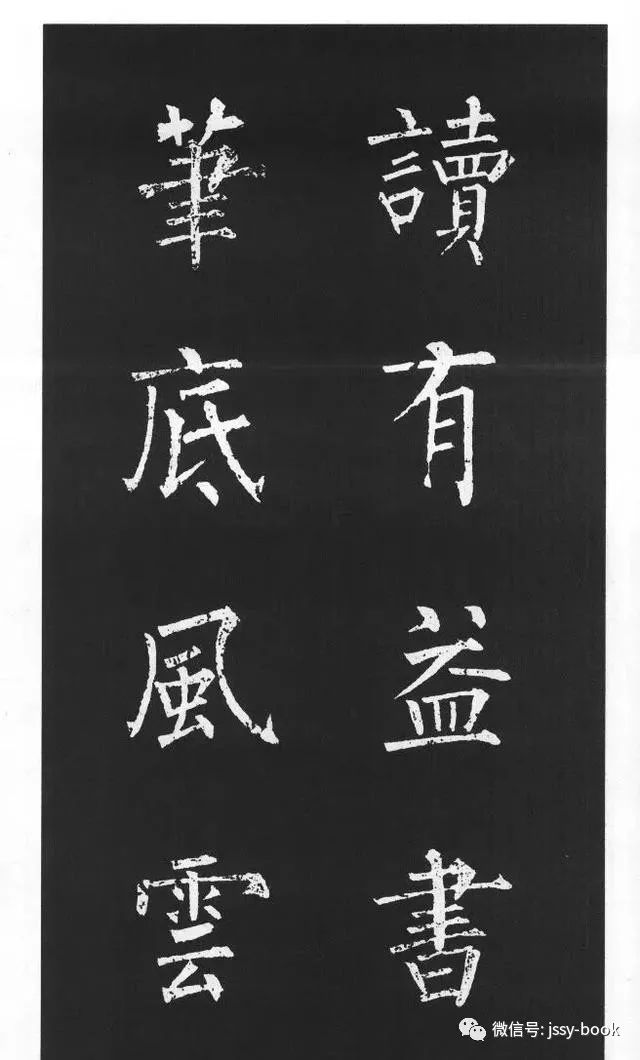 讀有益書
筆底風雲
微信号: jssy-book